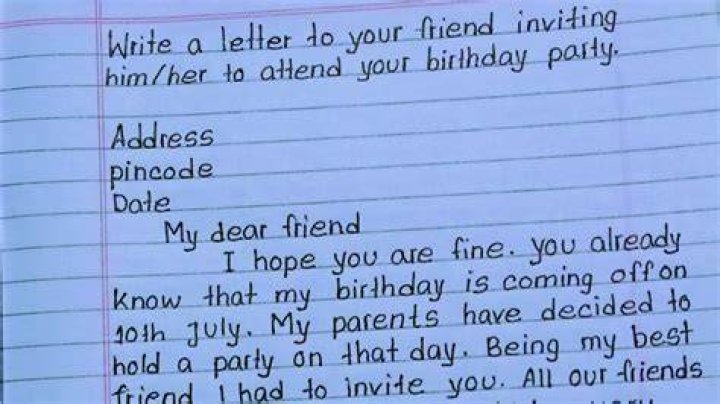 Write a letter to your friend inviting
him/her to attend your birthday party.
Address
pincode
Date
My dear friend
I hope you are fine. you already
know that my birthday is coming off on
10th July. My parents have decided to
hold a party on that day. Being my best
friend I had to invite you. All our friends